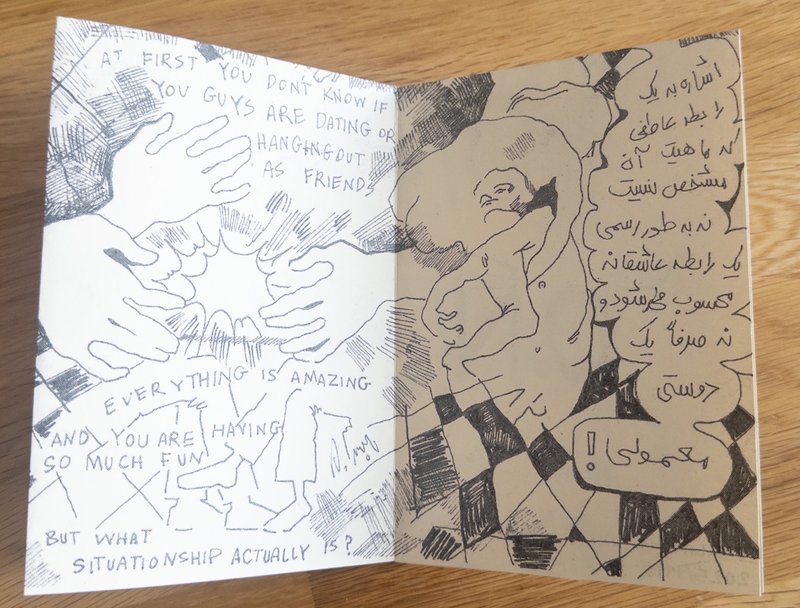 AT FIRST YOU DON'T KNOW IF
YOU GUYS ARE DATING OR
HANGING OUT
AS FRIENDS
EVERYTHING IS AMAZING
AND YOU ARE HAVING
SO MUCH FUN
BUT WHAT
SITUATIONSHIP ACTUALLY IS?
اشاره به یک
رابطه عاطفی
که ماهیت آن
مشخص نیست
نه به طور رسمی
یک رابطه عاشقانه
محسوب می‌شود و
نه صرفاً یک
دوستی
معمولی!